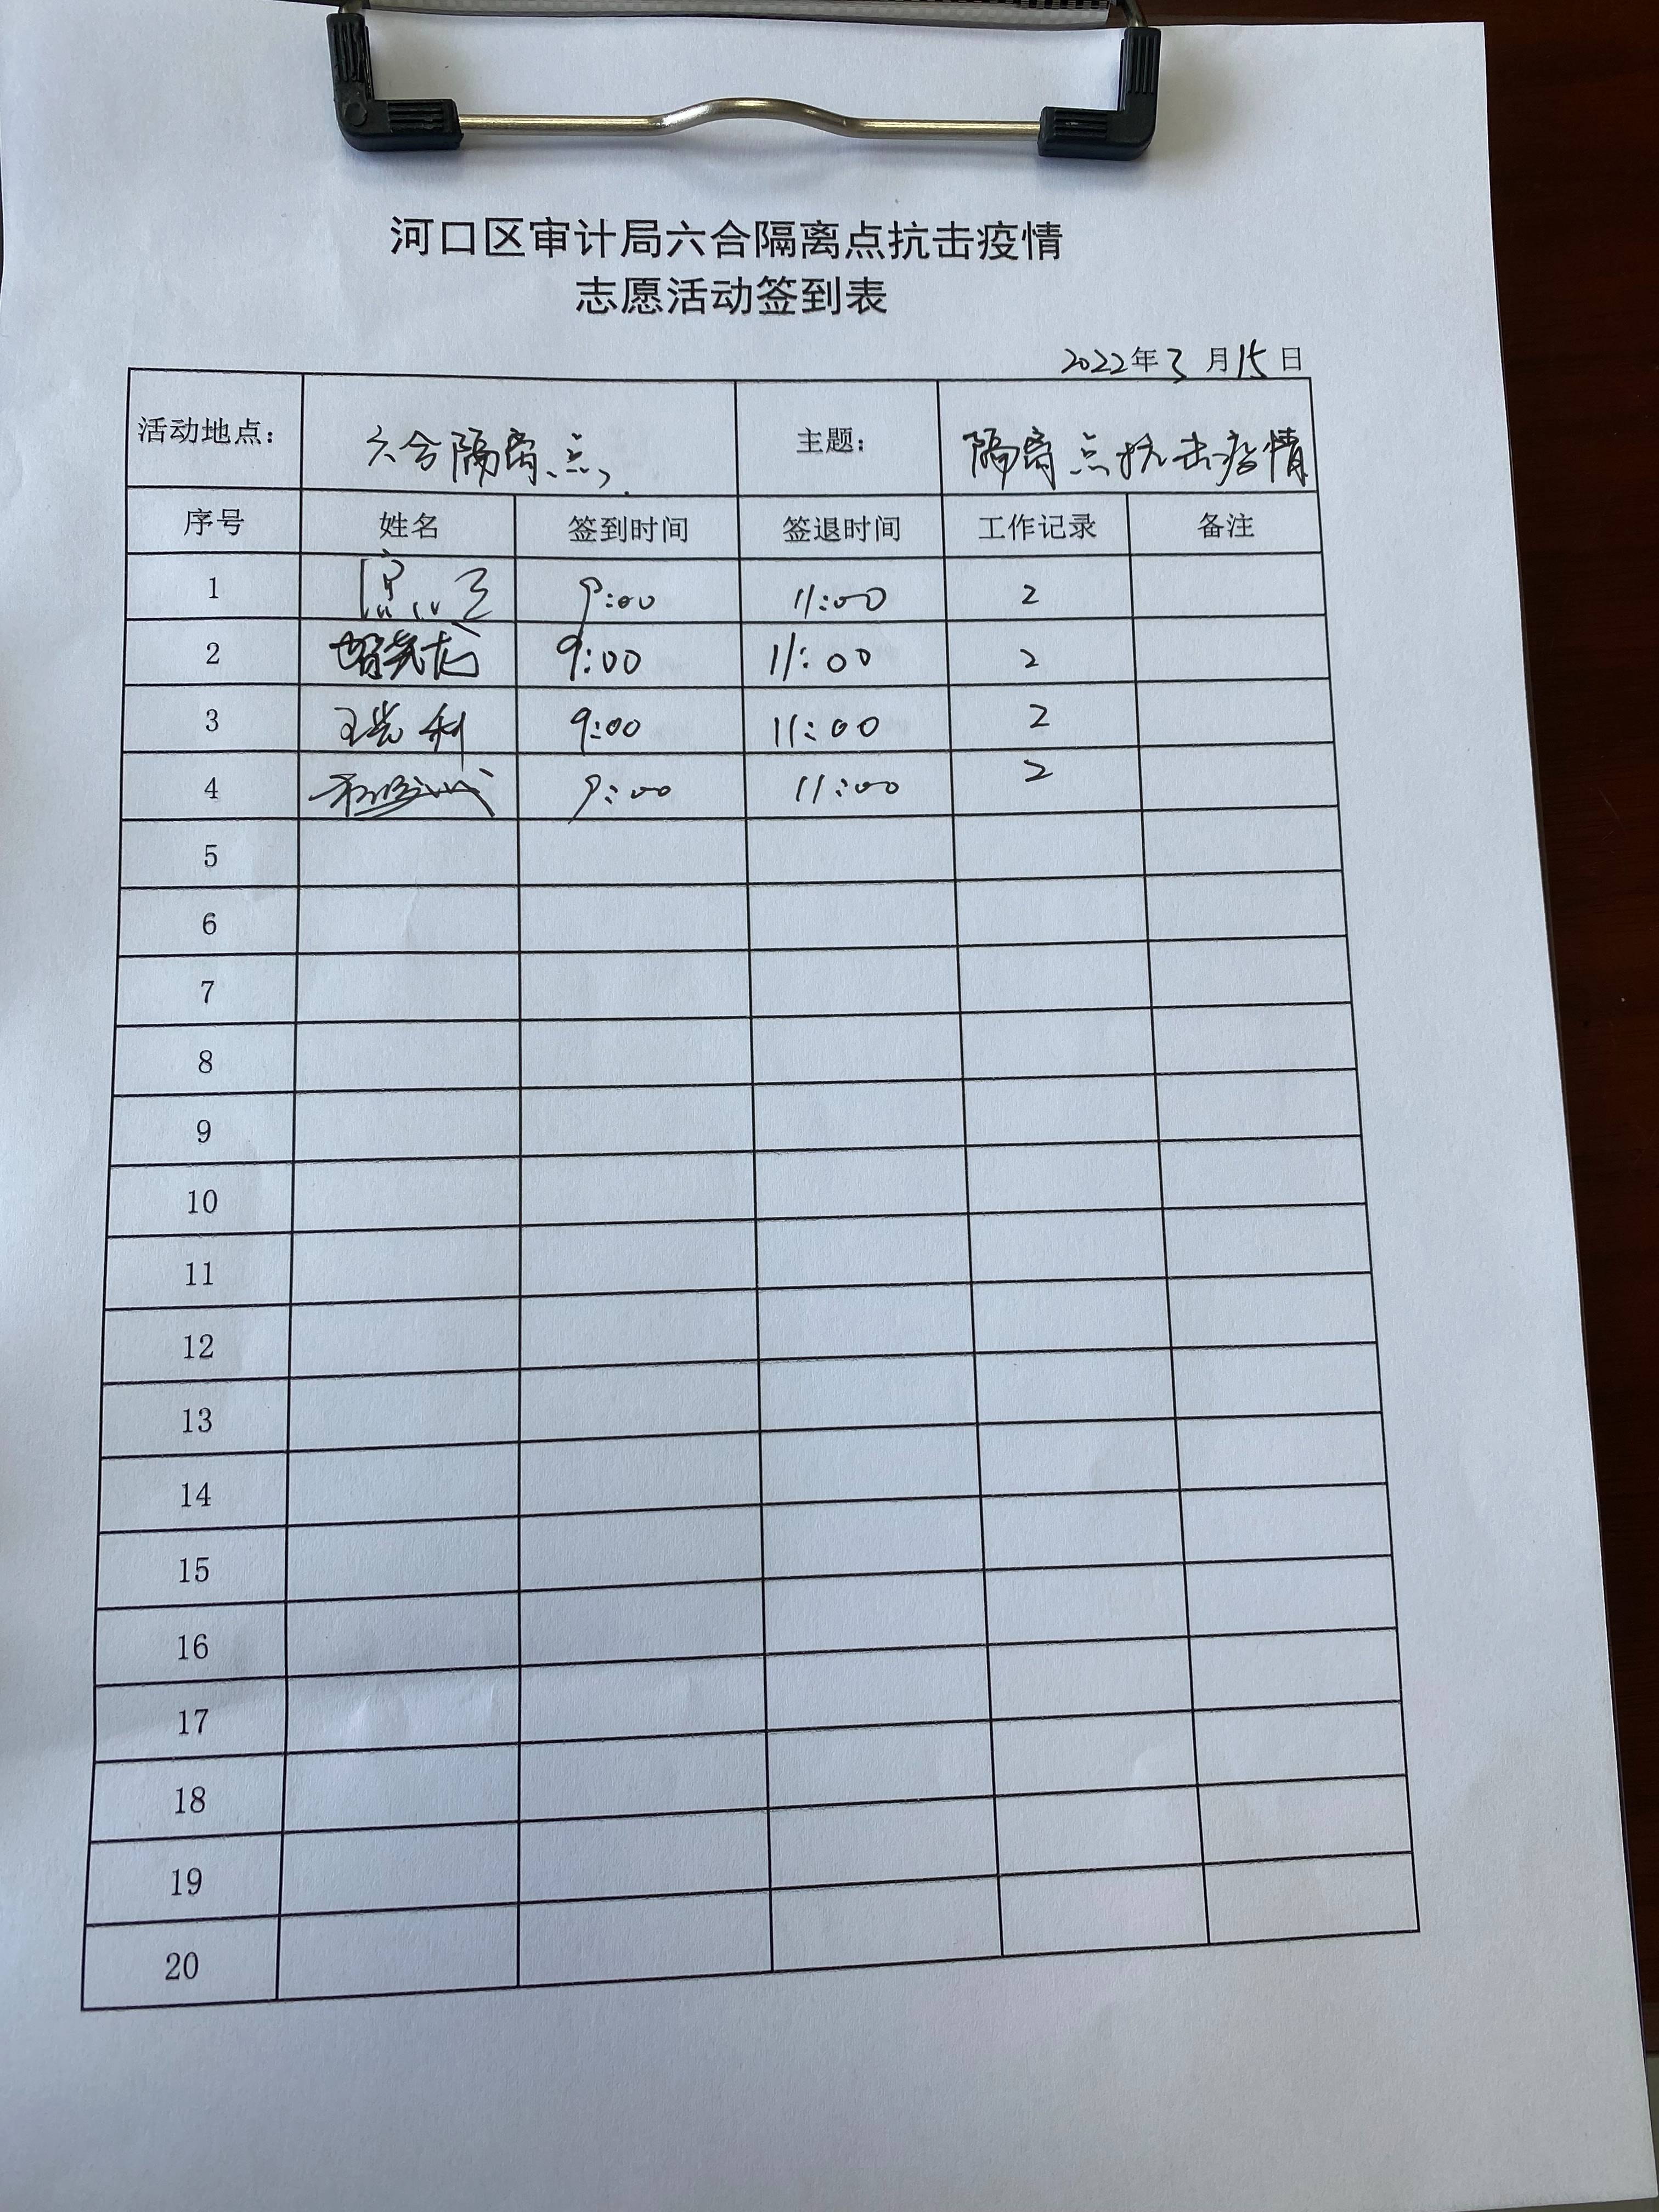 河口区审计局六合隔离点抗击疫情
志愿活动签到表
2022年3月15日
活动地点： 六合隔离点 主题： 隔离点抗击疫情
序号 姓名 签到时间 签退时间 工作记录 备注
1 9:00 11:00 2
2 9:00 11:00 2
3 9:00 11:00 2
4 9:00 11:00 2
5
6
7
8
9
10
11
12
13
14
15
16
17
18
19
20